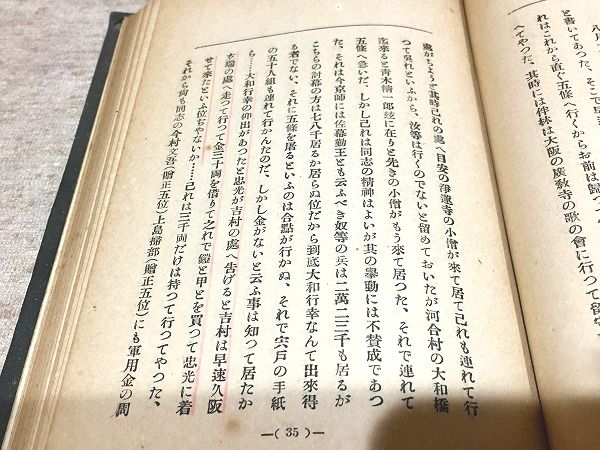 八月
と書いてあつた、そこで早速
れはこれから直ぐ五條へ行くからお前は歸つて
へてやつた、其時には伴林は大阪の廣敎寺の歌の會に行つて留守
處がちようど其時己れの處へ目安の淨蓮寺の小僧が來て居て己れも連れて行
つて吳れといふから、汝等は行くのでないと留めておいたが河合村の大和橋
迄來ると靑木精一郞玆に在りと先きの小僧がもう來て居つた、それで連れて
五條へ急いだ、しかし己れは同志の精神はよいが其の擧動には不賛成であつ
た、それは今京師には佐幕勤王とも云ふべき奴等の兵は二萬二三千も居るが
こちらの討幕の方は七八千居るか居らぬ位だから到底大和行幸なんて出來得
る者でない、それに五條を屠るといふのは合點が行かぬ、それで宍戶の手紙
の五十人組も連れて行かんのだ、しかし金がないと云ふ事は知つて居たか
ら……大和行幸の仰出があつたと忠光が吉村の處へ吿げると吉村は早速久阪
玄瑞の處へ走つて行つて金三十兩を借りて之れで鎧と甲とを買つて忠光に着
せて來たといふ位ぢやないか……己れは三千兩だけは持つて行つてやつた、
それから尙も同志の今村文吾(贈正五位)上島掃部(贈正五位)にも軍用金の周
―( 35 )―